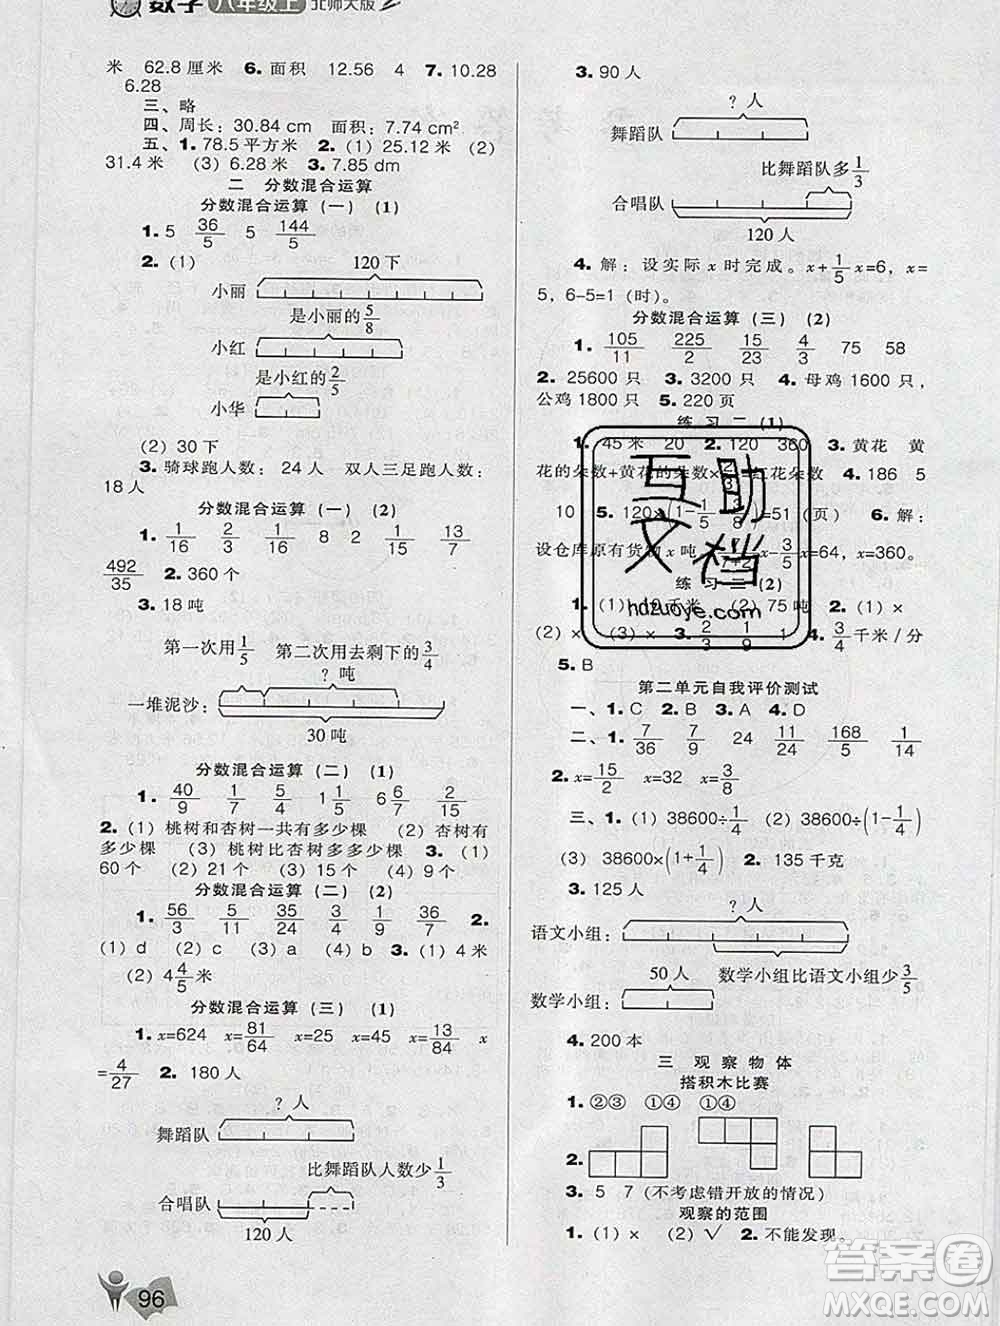 数学 八年级上 北师大版
米 62.8 厘米 6. 面积 12.56 4 7. 10.28
6.28
三、略
四、周长：30.84 cm 面积：7.74 cm²
五、1. 78.5 平方米 2. (1) 25.12 米 (2)
31.4 米 (3) 6.28 米 3. 7.85 dm
二 分数混合运算
分数混合运算（一） (1)
1. 5 36/5 5 144/5
2. (1)
120 下
小丽
是小丽的5/8
小红
是小红的2/5
小华
(2) 30 下
3. 骑球跑人数：24 人 双人三足跑人数：
18 人
分数混合运算（一） (2)
1. 1/16 9/16 8 2 1/15 13/7
492/35 2. 360 个
3. 18 吨
第一次用1/5 第二次用去剩下的3/4
? 吨
一堆泥沙：
30 吨
分数混合运算（二） (1)
1. 40/9 1/7 5/4 1 1/5 6/7 2/15
2. (1) 桃树和杏树一共有多少棵 (2) 杏树有
多少棵 (3) 桃树比杏树多多少棵 3. (1)
60 个 (2) 21 个 (3) 15 个 (4) 9 个
分数混合运算（二） (2)
1. 56/3 5/11 35/24 3/4 1/9 36/7 2.
(1) d (2) c (3) a (4) b 3. (1) 4 米
(2) 4 4/5 米
分数混合运算（三） (1)
1. x=624 x=81/64 x=25 x=45 x=13/84 x
=4/27 2. 180 人
? 人
舞蹈队
比舞蹈队人数少1/3
合唱队
120 人
96
3. 90 人
? 人
舞蹈队
比舞蹈队多1/3
合唱队
120 人
4. 解：设实际 x 时完成。x+1/5x=6，x=
5，6-5=1（时）。
分数混合运算（三） (2)
1. 105/11 225/2 15/23 4/3 75 58
2. 25600 只 3. 3200 只 4. 母鸡 1600 只，
公鸡 1800 只 5. 220 页
练 习 二 (1)
1. 45 米 20 2. 120 360 3. 黄花 黄
花的朵数+黄花的朵数×2/3=红花朵数 4. 186 5
10 5. 120×(1-1/5-3/8)=51（页） 6. 解：
设仓库原有货物 x 吨 x-3/5x=64，x=360。
练 习 二 (2)
千米 (2) 75 吨 2. (1) ×
(2) × (3) × 3. 2/3 1/9 1 4. 3/4千米/分
5. B
互助文档
hdzuoye.com
第二单元自我评价测试
一、1. C 2. B 3. A 4. D
二、1. 7/36 7/9 24 11/24 168/5 1/14
2. x=15/2 x=32 x=3/8
三、1. (1) 38600÷1/4 (2) 38600×(1-1/4)
(3) 38600×(1+1/4) 2. 135 千克
3. 125 人
? 人
语文小组：
50 人 数学小组比语文小组少3/5
数学小组：
4. 200 本
三 观察物体
搭积木比赛
1. ②③ ①④ ①④
2.
3. 5 7 (不考虑错开放的情况)
观察的范围
1. (1) × (2) √ 2. 不能发现。
答案圈
MXQE.COM